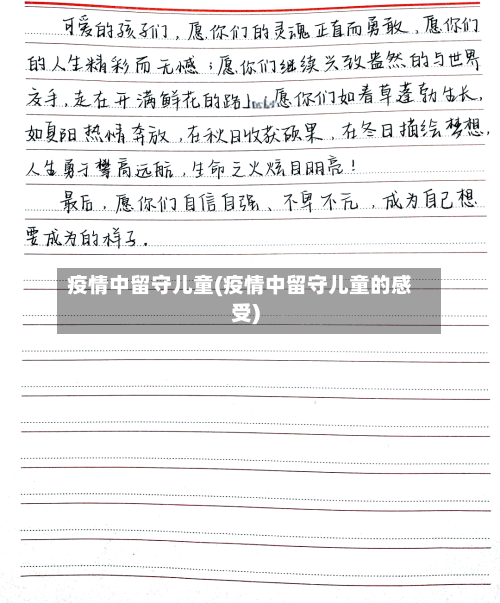 可爱的孩子们，愿你们的灵魂正直而勇敢，愿你们
的人生精彩而无憾；愿你们继续兴致盎然的与世界
交手，走在开满鲜花的路上，愿你们如春草蓬勃生长，
如夏阳热情奔放，在秋日收获硕果，在冬日描绘梦想，
人生勇于攀高远航，生命之火炫目明亮！
最后，愿你们自信自强、不卑不亢，成为自己想
要成为的样子。
疫情中留守儿童(疫情中留守儿童的感
受)